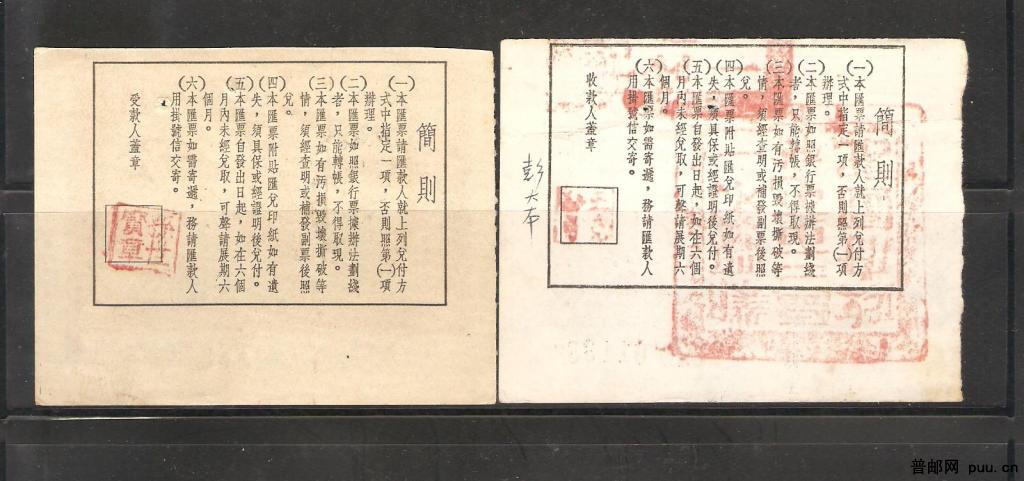 簡則
(一)本匯票請匯款人就上列兌付方
式中指定一項，否則照第(一)項
辦理。
(二)本匯票如照銀行票據辦法劃綫
者，只能轉帳，不得取現。
(三)本匯票如有污損毀壞撕破等
情，須經查明或補發副票後照
兌。
(四)本匯票附貼匯兌印紙如有遺
失，須具保或經證明後兌付。
(五)本匯票自發出日起，如在六個
月內未經兌取，可聲請展期六
個月。
(六)本匯票如需寄遞，務請匯款人
用掛號信交寄。
受款人蓋章
簡則
(一)本匯票請匯款人就上列兌付方
式中指定一項，否則照第(一)項
辦理。
(二)本匯票如照銀行票據辦法劃綫
者，只能轉帳，不得取現。
(三)本匯票如有污損毀壞撕破等
情，須經查明或補發副票後照
兌。
(四)本匯票附貼匯兌印紙如有遺
失，須具保或經證明後兌付。
(五)本匯票自發出日起，如在六個
月內未經兌取，可聲請展期六
個月。
(六)本匯票如需寄遞，務請匯款人
用掛號信交寄。
收款人蓋章
彭大本
普邮网 puu.cn